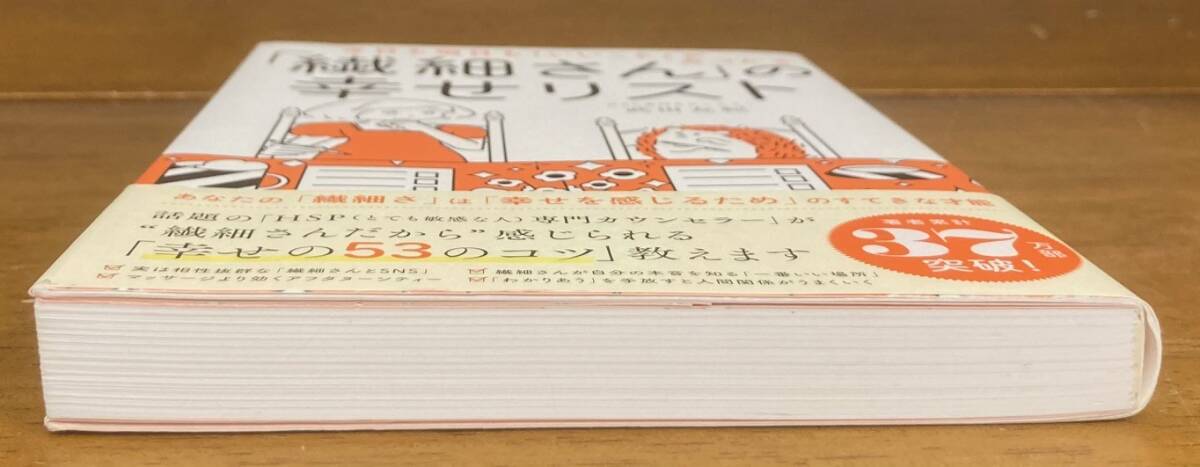 「繊細さん」の
幸せリスト
あなたの「繊細さ」は「幸せを感じるため」のすてきな才能
話題の「HSP（とても敏感な人）専門カウンセラー」が
“繊細さんだから”感じられる
「幸せの53のコツ」教えます
著書累計
37万部
突破！
☑ 実は相性抜群な「繊細さんとSNS」
☑ マッサージより効くアフタヌーンティー
☑ 繊細さんが自分の本音を知る「一番いい場所」
☑ 「わかりあう」を手放すと人間関係がうまくいく